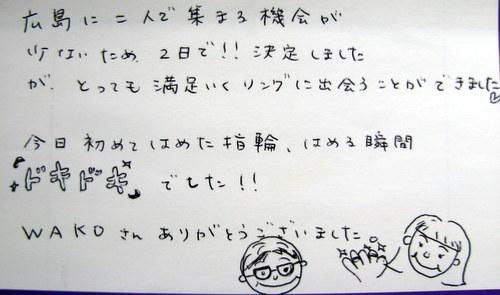 広島に二人で集まる機会が
少ないため、2日で!!決定しました
が、とっても満足いくリングに出会うことができました
今日初めてはめた指輪、はめる瞬間
"ドキドキ"でした!!
WAKOさんありがとうございました。